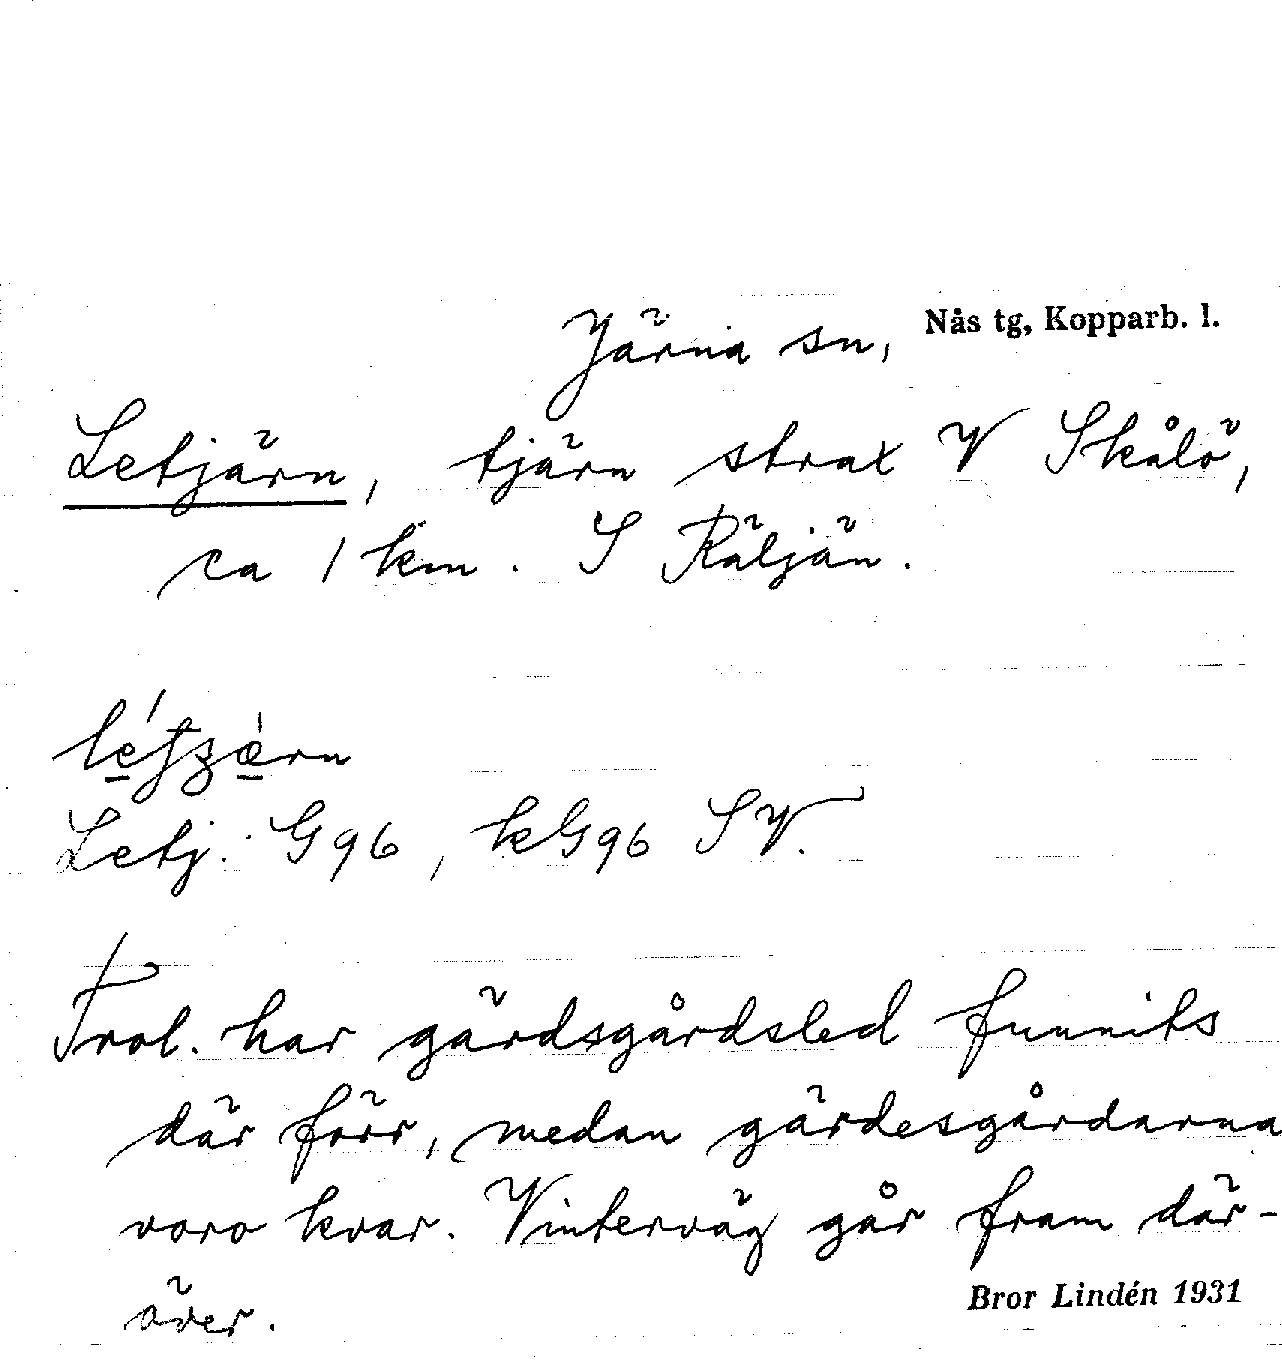 Järna sn, Nås tg, Kopparb. l.
Letjärn, tjärn strax V Skålö,
ca 1 km. S Räljän.
Letj. G96, kG96 SV.
Trol. har gärdsgårdsled funnits
där förr, medan gärdesgårdarna
voro kvar. Vinterväg går fram där-
över.
Bror Lindén 1931